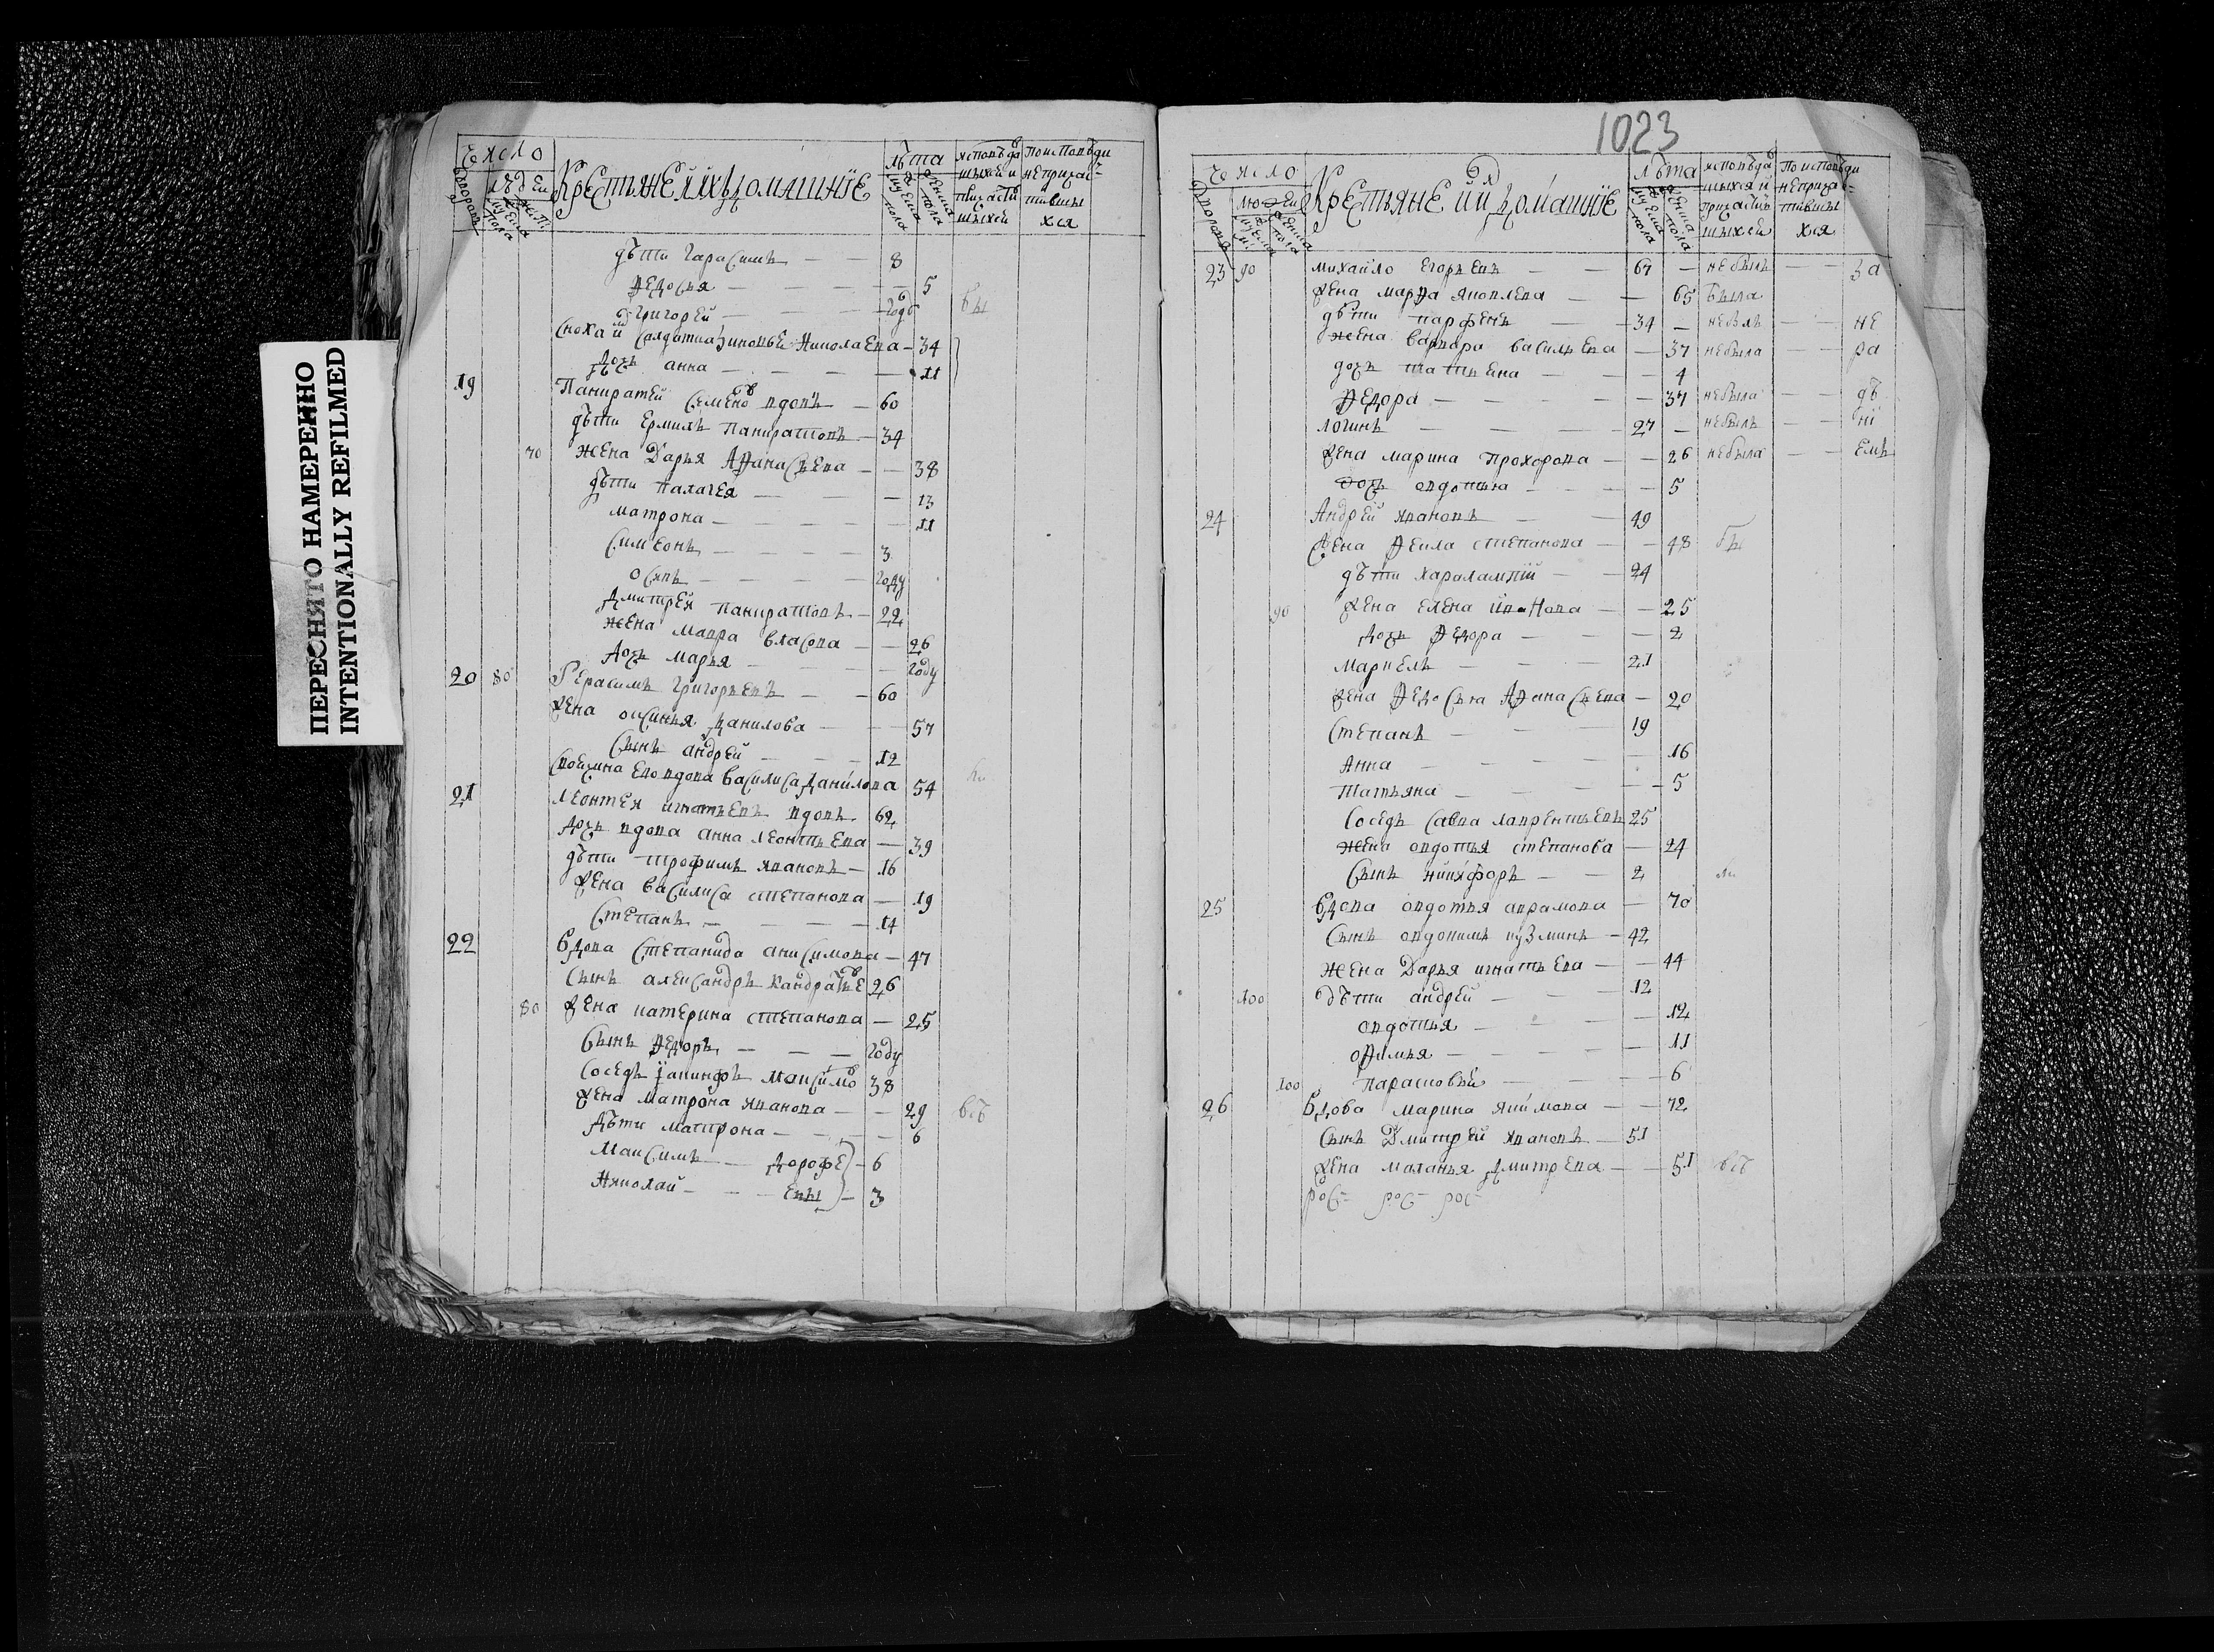 ПЕРЕСНЯТО НАМЕРЕННО
INTENTIONALLY REFILMED
Число
людей
Крестьяне и их домашние
лѣта
дворовъ
мужеска пола
женска пола
исповѣдавшихся и причастившихся
По исповѣди не причастившихся
дѣти Гарасимъ — — 8
Ѳедосья — — — — 5
Григорей — — — году
бы
сноха и солдатка Зиновья Николаева — 34
Дочь анна — — — — 11
19 Панкратей Семеновъ вдовъ — 60
дѣти Ермилъ Панкратовъ — 34
70 жена Дарья Аѳанасьева — — 38
дѣти палагея — — — 13
матрона — — — — 11
Симеонъ — — — — 3
осипъ — — — — году
Дмитрей панкратовъ — 22
жена мавра власова — — 26
дочь марья — — — — году
20 80 Герасимъ григорьевъ — — 60
жена оксинья данилова — — — 57
сынъ андрей — — — 12
свояченица ево вдова василиса данилова 54
ли
21 Леонтей игнатьевъ вдовъ — 62
дочь вдова анна леонтьева — 39
дѣти трофимъ ивановъ — 16
жена василиса степанова — 19
Степанъ — — — — 14
22 Вдова Степанида анисимова — 47
сынъ александръ кандратьев 26
80 жена катерина степанова — 25
сынъ Ѳедоръ — — — году
соседъ іакинфъ максимов 38
жена матрона иванова — — 29
всѣ
дѣти матрона — — — — 6
максимъ — — дорофе — 6
николай — — — евы — 3
1023
Число
людей
Крестьяне и их домашние
лѣта
дворовъ
мужеска пола
женска пола
исповѣдавшихся и причастившихся
По исповѣди не причастившихся
23 90 михайло егорьевъ — — 67 — не былъ — — за
жена марѳа яковлева — — 65 была
дѣти парфенъ — — 34 — не былъ — — не
жена варвара васильева — 37 не была — — ра
дочь татьяна — — — 4
Ѳедора — — — — — 37 не была — — дѣ
логинъ — — — — 27 — не былъ — — ні
жена марина прохорова — — 26 не была — — емъ
дочь овдотья — — — — 5
24 Андрей ивановъ — — 49
жена Ѳекла степанова — — 48 бы
дѣти харалампій — — 24
90 жена елена иванова — — 25
дочь Ѳедора — — — 2
маркелъ — — — 21
жена Ѳедосья Аѳанасьева — 20
Степанъ — — — 19
Анна — — — — — 16
татьяна — — — — — 5
соседъ савва лаврентьевъ 25
жена овдотья степанова — 24
сынъ никифоръ — — 2
ли
25 Вдова овдотья аврамова — 70
сынъ овдокимъ кузминъ — 42
жена Дарья игнатьева — — 44
100 дѣти андрей — — — 12
овдотья — — — — 12
оѳимья — — — — — 11
100 парасковья — — — — 6
26 Вдова марина якимова — — 72
сынъ Дмитрей ивановъ — 51
жена маланья дмитрева — — 51 всѣ
рос- рос- рос-